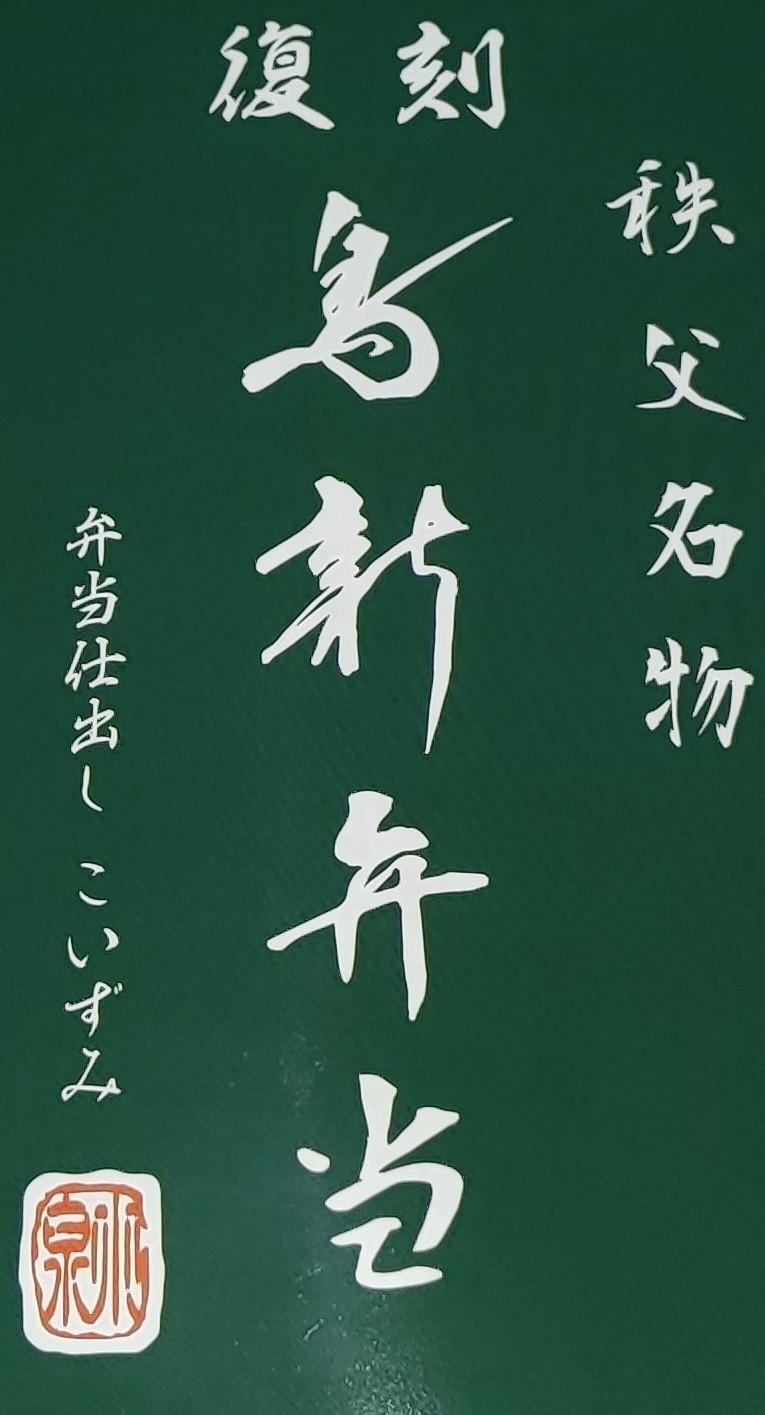 復刻
秩父名物
鳥新弁当
弁当仕出し こいずみ
小泉